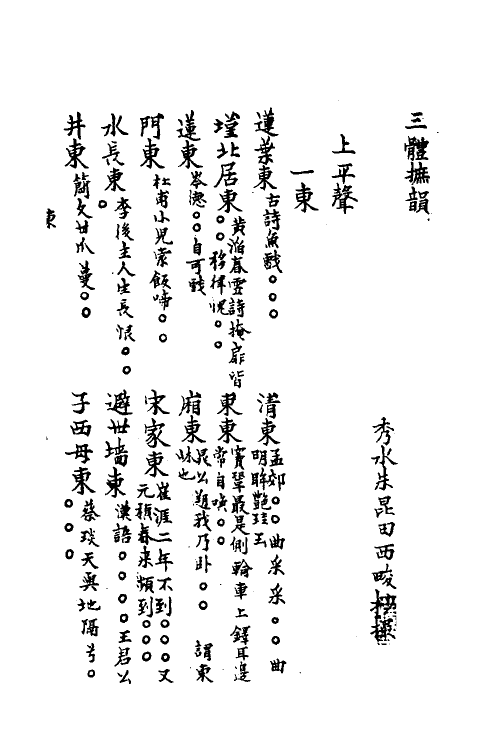 三體摭韻
秀水朱昆田西畯
上平聲
一東
蓮葉東 古詩魚戲○○○
清東 孟郊○○曲采采○○曲
明眸艷珪玉
墐北居東 黄滔春雪詩掩扉皆
○○移律愰○○
東東 竇鞏最是側輪車上鐸耳邊
常自喚○○
蓮東 岑德○○自可戲
廂東 昆公題我乃卧○○ 謂東
牀也
門東 杜甫小兒索飯啼○○
宋家東 崔涯二年不到○○○又
元稹春來頻到○○○
水長東 李後主人生長恨○○○
避世墻東 漢語○○○○王君公
井東 簡文甘爪蔓○○
子西母東 蔡琰天與地隔兮○
○○○
東